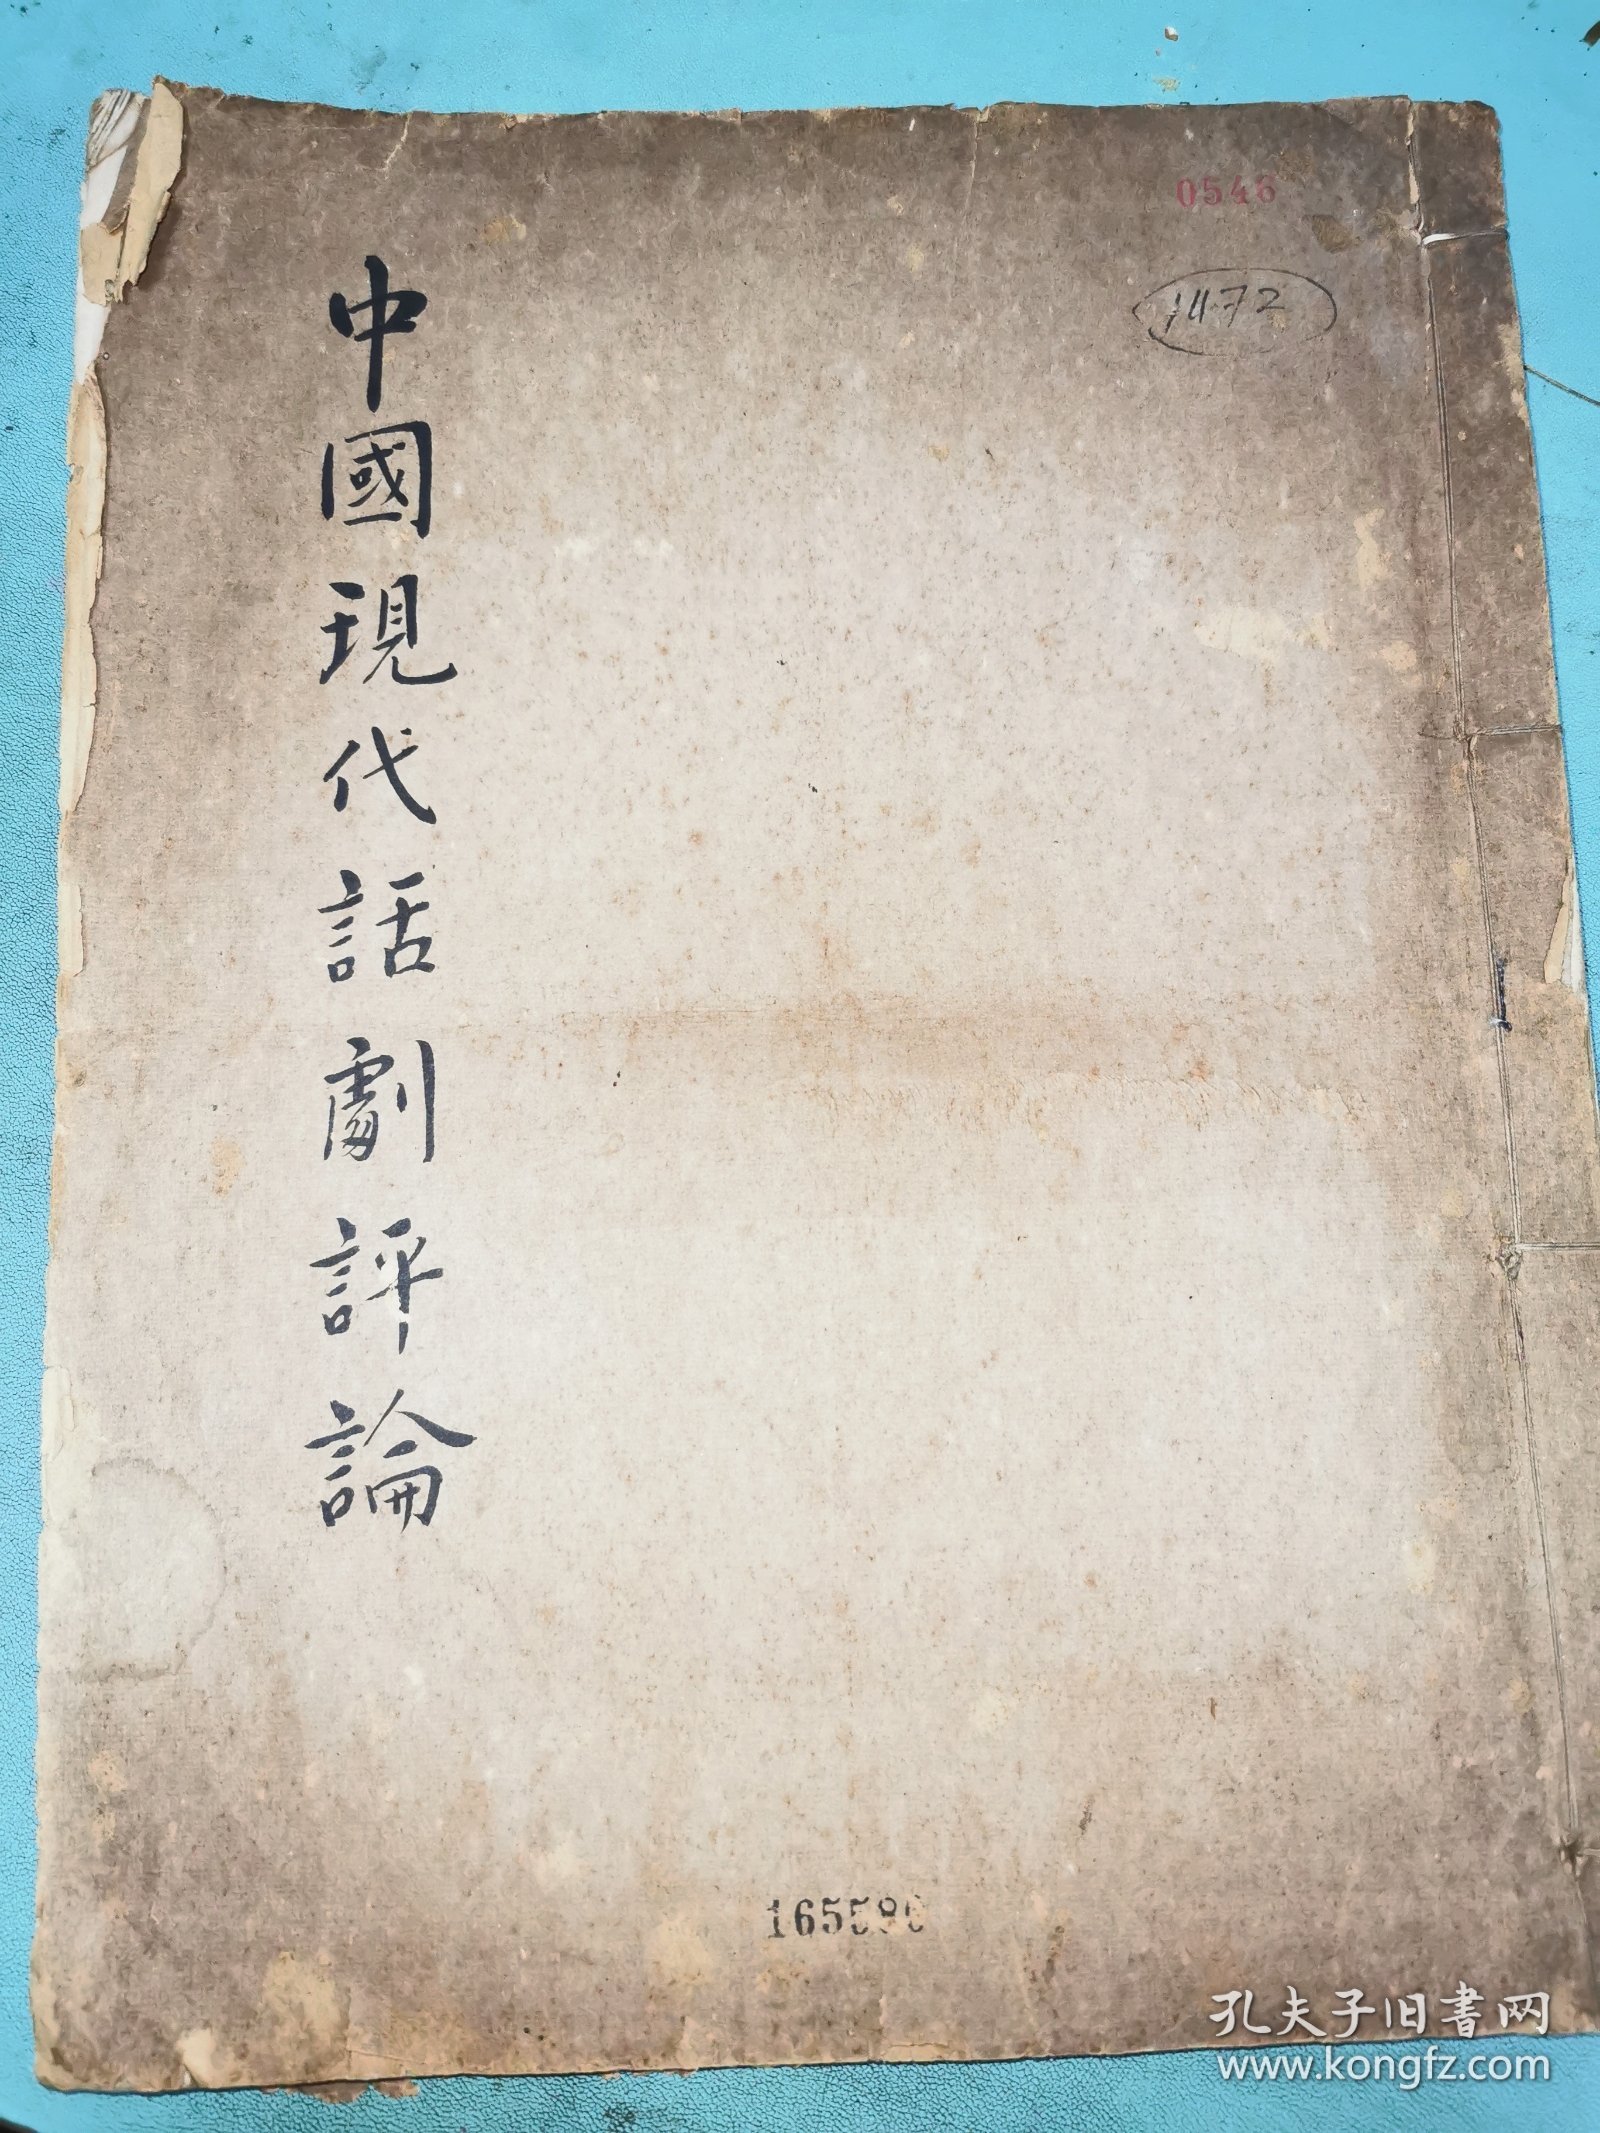 0546
1472
中國現代話劇評論
孔夫子旧書网
www.kongfz.com